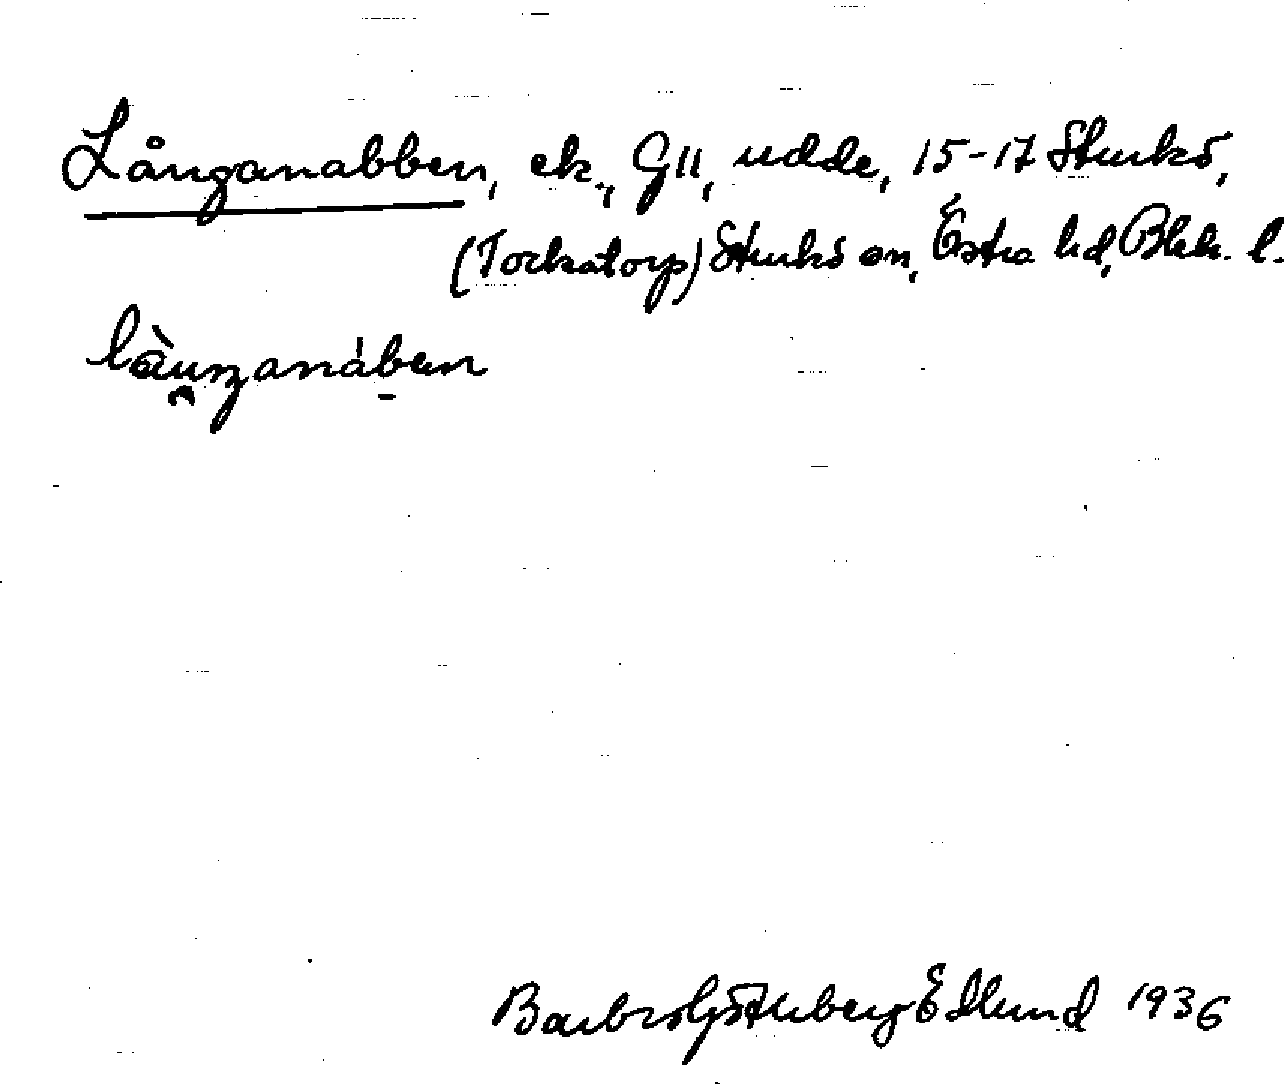 Långanabben, ek., GII, udde, 15-17 Sturkö,
(Torkatorp) Sturkö sn, Östra hd, Blek. l.
Barbro Göthberg Edlund 1936